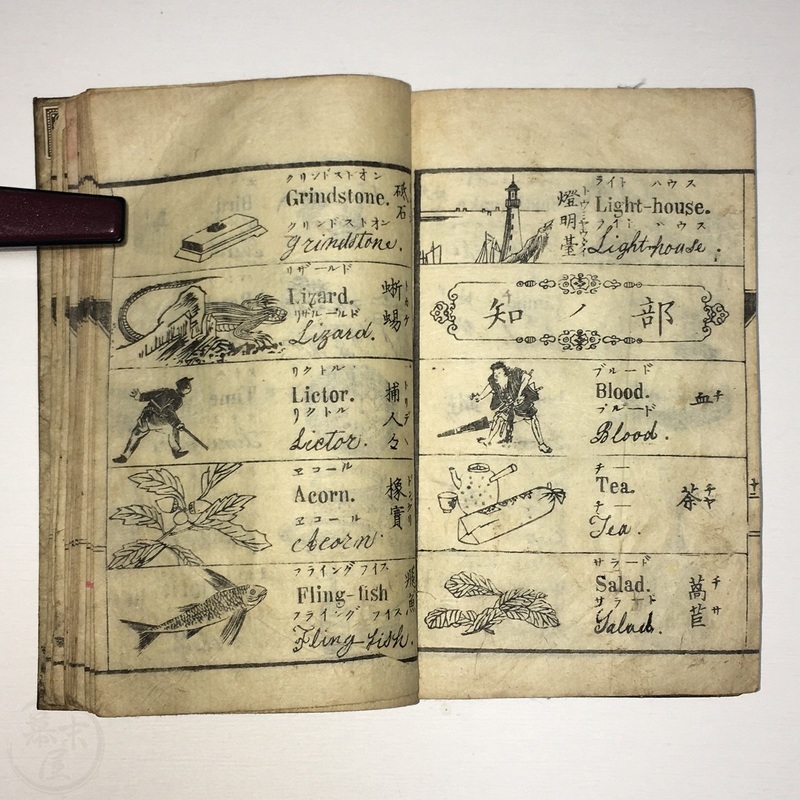 クリンドストオン
Grindstone.
砥石
クリンドストオン
Grindstone.
リザールド
Lizard.
蜥蜴
トカゲ
リザールド
Lizard.
リクトル
Lictor.
捕人
リクトル
Lictor.
ヱコール
Acorn.
橡實
ドングリ
ヱコール
Acorn.
フライング フイス
Fling-fish
飛魚
フライング フイス
Fling-fish.
ライト ハウス
Light-house.
燈明臺
ライト ハウス
Light-house.
知ノ部
チ
ブルード
Blood.
血
チ
ブルード
Blood.
チー
Tea.
茶
チヤ
チー
Tea.
サラード
Salad.
萵苣
チサ
サラード
Salad.
十二